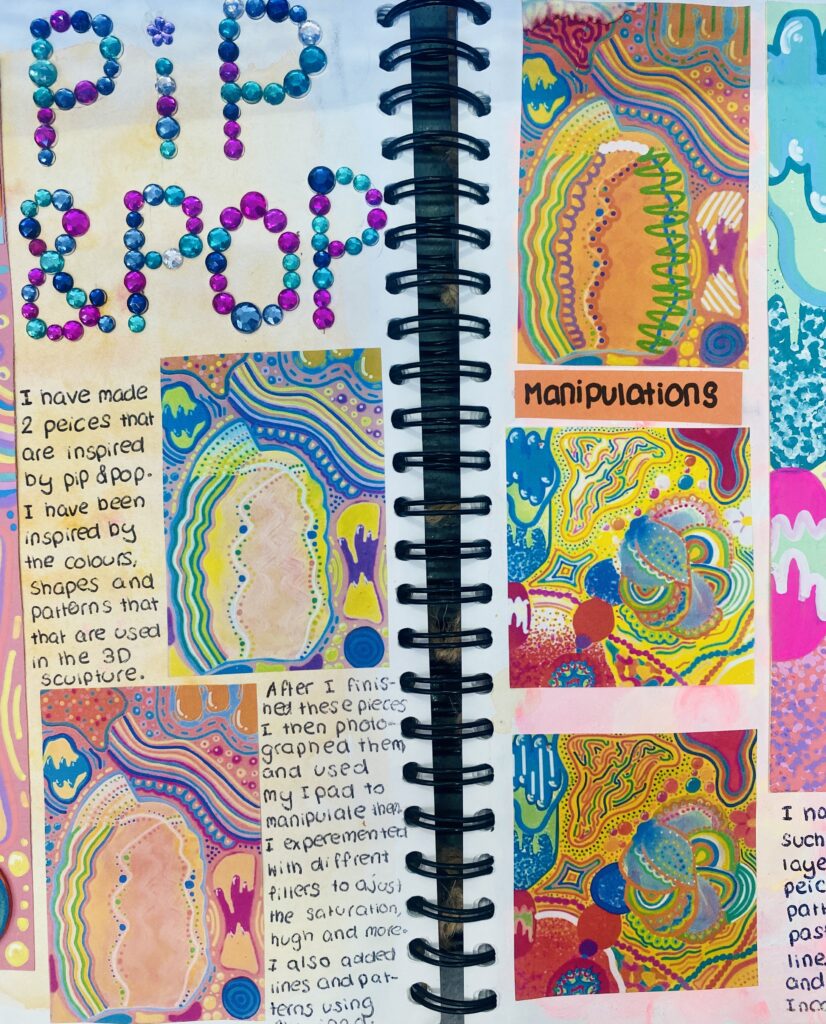 PiP
&POP
I have made
2 peices that
are inspired
by pip &pop.
I have been
inspired by
the colours,
shapes and
patterns that
that are used
in the 3D
sculpture.
After I finis-
hed these pieces
I then photo-
graphed them
and used
my Ipad to
manipulate them.
I experemented
with diffrent
fillers to ajust
the saturation,
hugh and more.
I also added
lines and pat-
terns using
Manipulations
I no
such
laye
peic
patt
pas
line
and